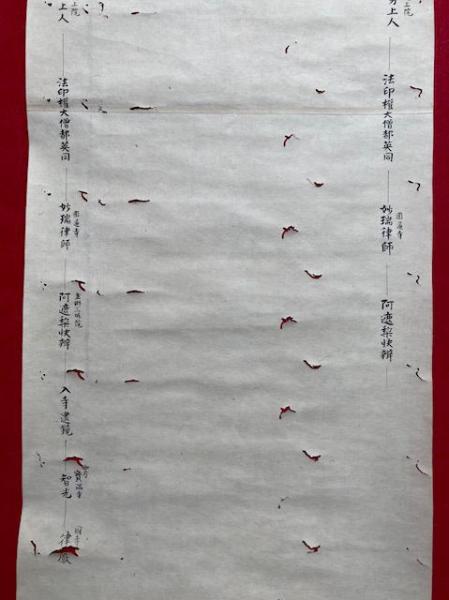 上人
法印權大僧都英同
圓通寺
妙瑞律師
阿遮梨快辨
上院
上人
法印權大僧都英同
圓通寺
妙瑞律師
阿遮梨快辨
入寺
智光